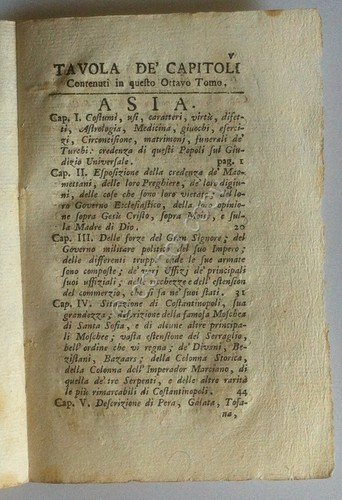 v
TAVOLA DE' CAPITOLI
Contenuti in questo Ottavo Tomo.
ASIA.
Cap. I. Costumi, usi, caratteri, virtù, difet-
ti, Astrologia, Medicina, giuochi, eserci-
zi, Circoncisione, matrimonj, funerali de'
Turchi: credenza di questi Popoli sul Giu-
dizio Universale. pag. 1
Cap. II. Esposizione della credenza de' Mao-
mettani, delle loro Preghiere, de' loro digiu-
ni, delle cose che sono loro vietate; del lo-
ro Governo Ecclesiastico, della loro opinio-
ne sopra Gesù Cristo, sopra Moisè, e sul-
la Madre di Dio. 20
Cap. III. Delle forze del Gran Signore; del
Governo militare politico del suo Impero;
delle differenti truppe onde le sue armate
sono composte; de' varj Uffizj de' principali
suoi uffiziali, delle ricchezze e dell' estension
del commerzio, che si fa ne' suoi stati. 31
Cap. IV. Situazione di Costantinopoli, sua
grandezza; descrizione della famosa Moschea
di Santa Sofia, e di alcune altre principa-
li Moschee; vasta estensione del Serraglio,
bell' ordine che vi regna; de' Divani, Be-
zistani, Bazaars; della Colonna Storica,
della Colonna dell' Imperador Marciano, di
quella de' tre Serpenti, e delle altre rarità
le più rimarcabili di Costantinopoli. 44
Cap. V. Descrizione di Pera, Galata, Tofa-
na,